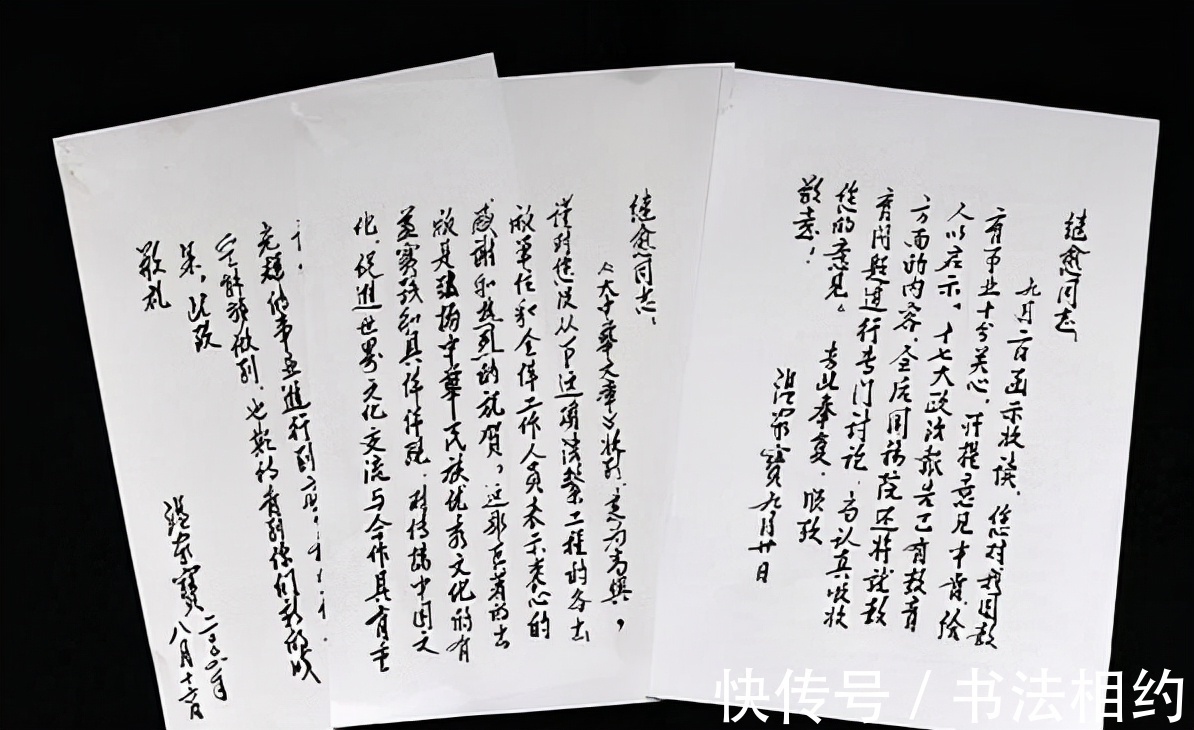 继愈同志：
九月二日函示收读。您对我国教
育事业十分关心，并提意见中肯，给
人以启示。十七大政治报告已有教育
方面的内容，会后国务院还将就教
育问题进行专门讨论，当认真吸收
您的意见。专此奉复，顺致
敬意！
温家宝 九月廿日
继愈同志：
大中华文库
谨对您及从事这项浩繁工程的各出
版单位和全体工作人员表示衷心的
感谢和热烈的祝贺。这部巨著的出
版是弘扬中华民族优秀文化的有
益实践和具体体现，对传播中国文
化，促进世界文化交流与合作具有重
事业进行到
能够做到，也期待看到你们新的成
果。此致
敬礼
温家宝 二〇〇六年
八月十六日
快传号 / 书法相约